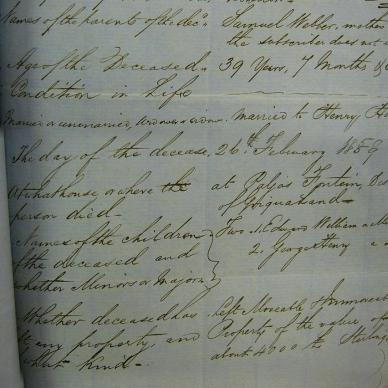 Names of the parents of the dec.d Samuel Webber, mother
the subscriber does not
Age of the Deceased. 39 Years, 7 Months &
Condition in Life
Married or unmarried, widower or widow. married to Henry
The day of the decease, 26th February 185
At what house or where the at Paljas Fontein,
person died – of Gonqualand –
Names of the children Two 1. William a
of the deceased and 2. George Henry a
whether Minors or Majors
Whether deceased has Left Moveable & Immovea
left any property and Property of the value of
what Kind – about 4000 Sterling